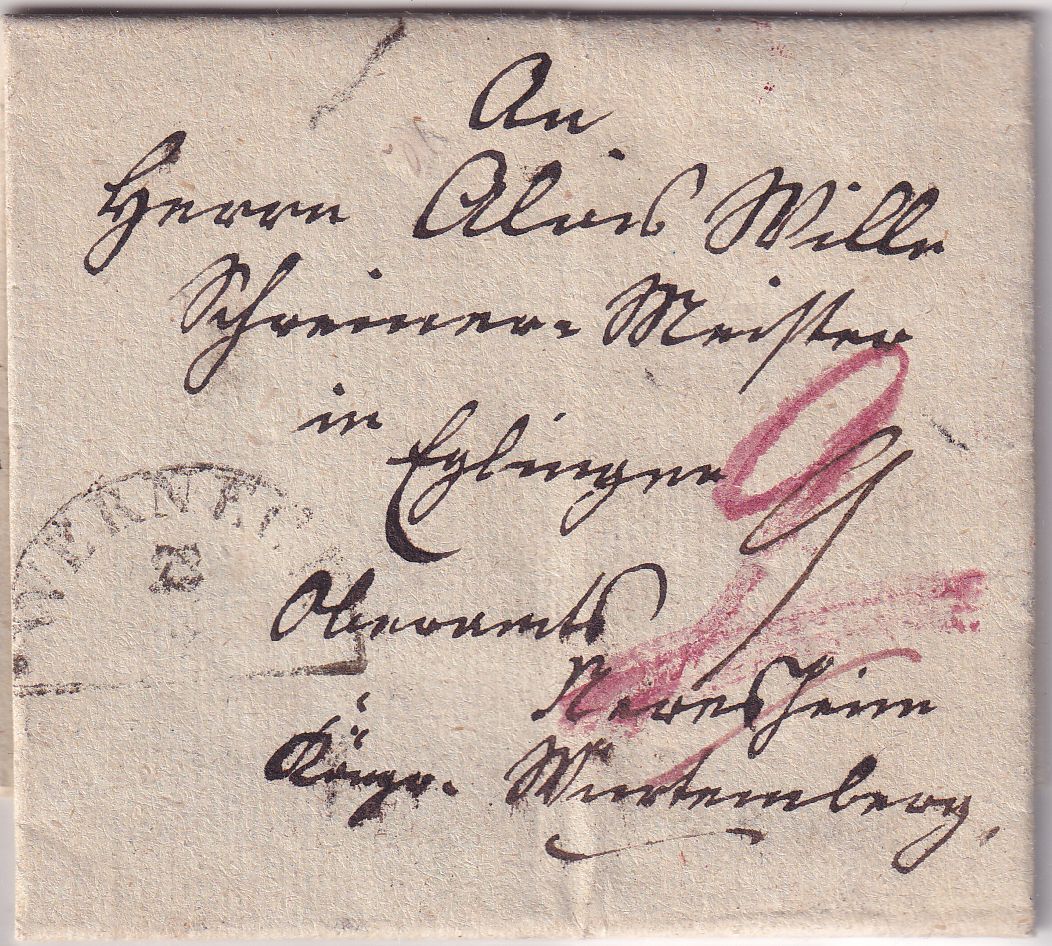 An
Herrn Alois Wille
Schreiner-Meister
in
Eglingen
9
WERNEC
Oberamts
Neresheim
Königr. Würtemberg.